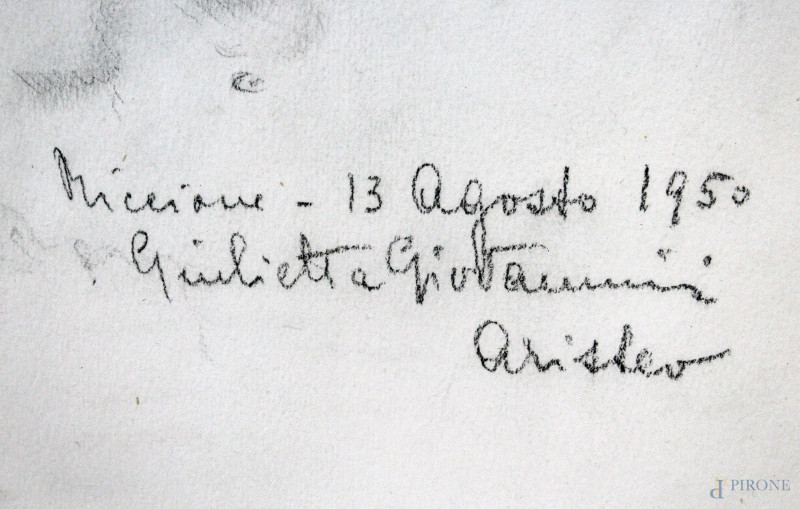 Riccione - 13 Agosto 1950
Giulietta Giovannini
Aristeo
PIRONE